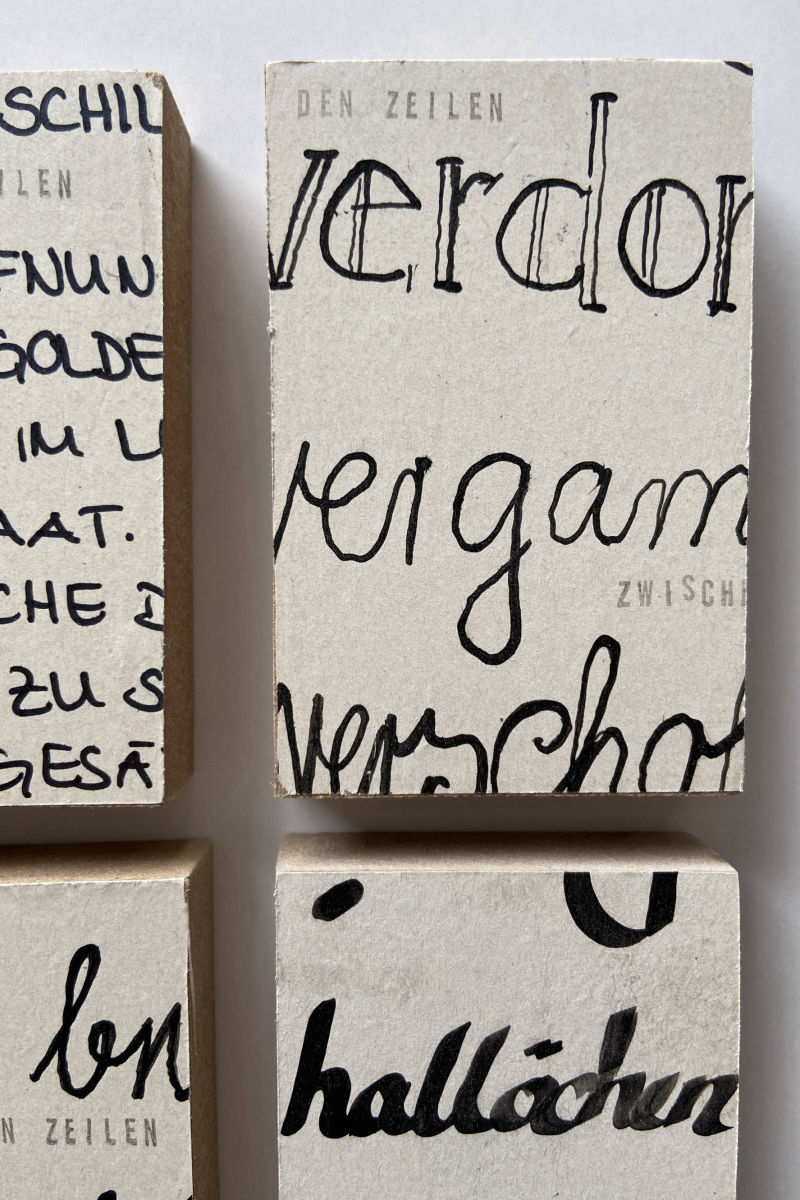 SCHIL
ILEN
FNUN
GOLDE
IM L
AAT.
CHE D
ZU S
GESÄ
DEN ZEILEN
verdor
vergam
ZWISCHE
verschol
bn
N ZEILEN
hallöchen